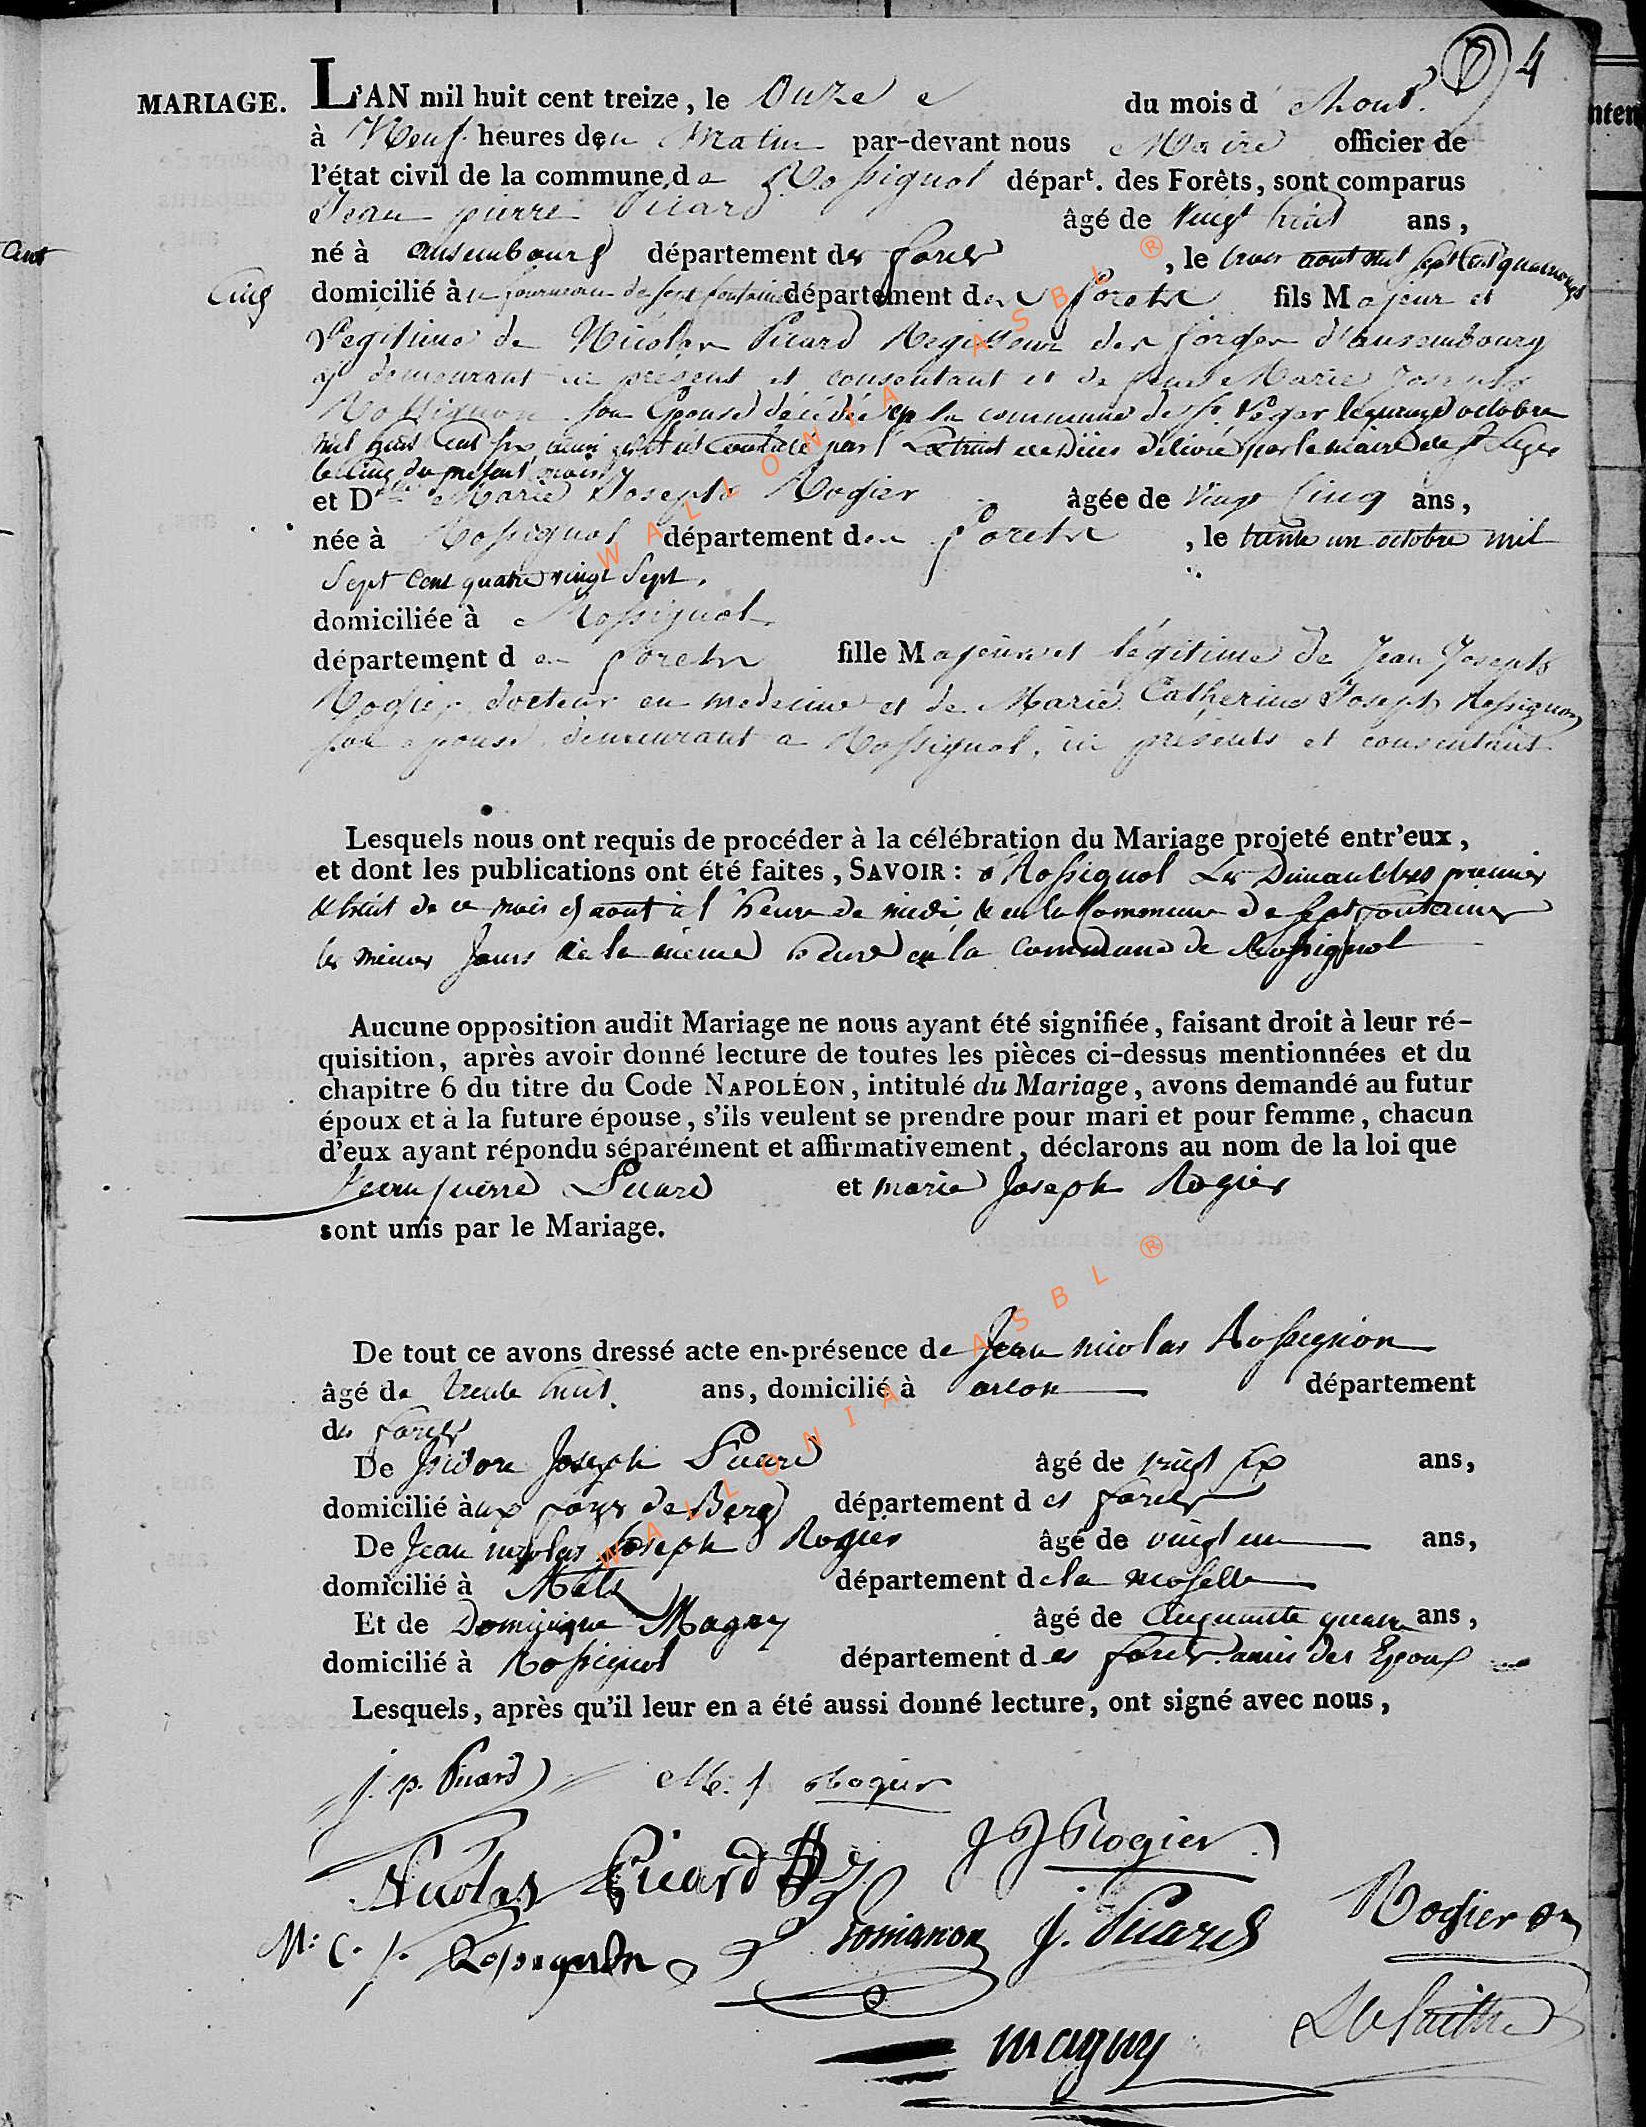 4
MARIAGE. L'AN mil huit cent treize, le Onze du mois d' Aout
à Neuf heures du Matin par-devant nous Maire officier de
l'état civil de la commune de Rossignol départ. des Forêts, sont comparus
Jean pierre Picard âgé de Vingt huit ans,
né à ansembourg département des forets, le trois aout mil sept cent quatrevingt
Cinq domicilié à fourneau de sept fontaines département des forets fils Majeur et
Legitime de Nicolas Picard Regisseur des forges d'ansembourg
y demeurant ici present et consentant et de feue Marie Joseph
Rossignon son Epouse décédée en la commune de St Léger le quinze octobre
mil huit cent six ainsi qu'il est constaté par l'Extrait de décès délivré par le maire de St Léger
le Cinq du présent mois
et Dlle Marie Joseph Rogier âgée de Vingt Cinq ans,
née à Rossignol département des forets, le trente un octobre mil
Sept Cent quatre vingt Sept.
domiciliée à Rossignol
département des forets fille Majeure et légitime de Jean Joseph
Rogier docteur en medecine et de Marie Catherine Joseph Rossignon
son epouse demeurant a Rossignol, ici présents et consentant
Lesquels nous ont requis de procéder à la célébration du Mariage projeté entr'eux,
et dont les publications ont été faites, SAVOIR : a Rossignol Les Dimanches premier
& huit de ce mois d'aout à l'heure de midi, & en la Commune de Sept fontaines
les mêmes Jours & à la même heure en la commune de Rossignol
Aucune opposition audit Mariage ne nous ayant été signifiée, faisant droit à leur ré-
quisition, après avoir donné lecture de toutes les pièces ci-dessus mentionnées et du
chapitre 6 du titre du Code NAPOLÉON, intitulé du Mariage, avons demandé au futur
époux et à la future épouse, s'ils veulent se prendre pour mari et pour femme, chacun
d'eux ayant répondu séparément et affirmativement, déclarons au nom de la loi que
Jean pierre Picard et marie Joseph Rogier
sont unis par le Mariage.
De tout ce avons dressé acte en présence de Jean nicolas Rossignon
âgé de trente huit ans, domicilié à arlon département
des forets
De Isidore Joseph Picard âgé de vingt six ans,
domicilié aux forges de Berg département des forets
De Jean nicolas Joseph Rogier âgé de vingt un ans,
domicilié à Metz département de la moselle
Et de Dominique Magny âgé de Cinquante quatre ans,
domicilié à Rossignol département des forets amis des Epoux
Lesquels, après qu'il leur en a été aussi donné lecture, ont signé avec nous,
j. p. Picard M. j Rogier
J J Rogier
Nicolas Picard
Rogier
M. C. j. Rossignon Rossignon j. Picard
magny
WALLONIA ASBL ®
WALLONIA ASBL ®